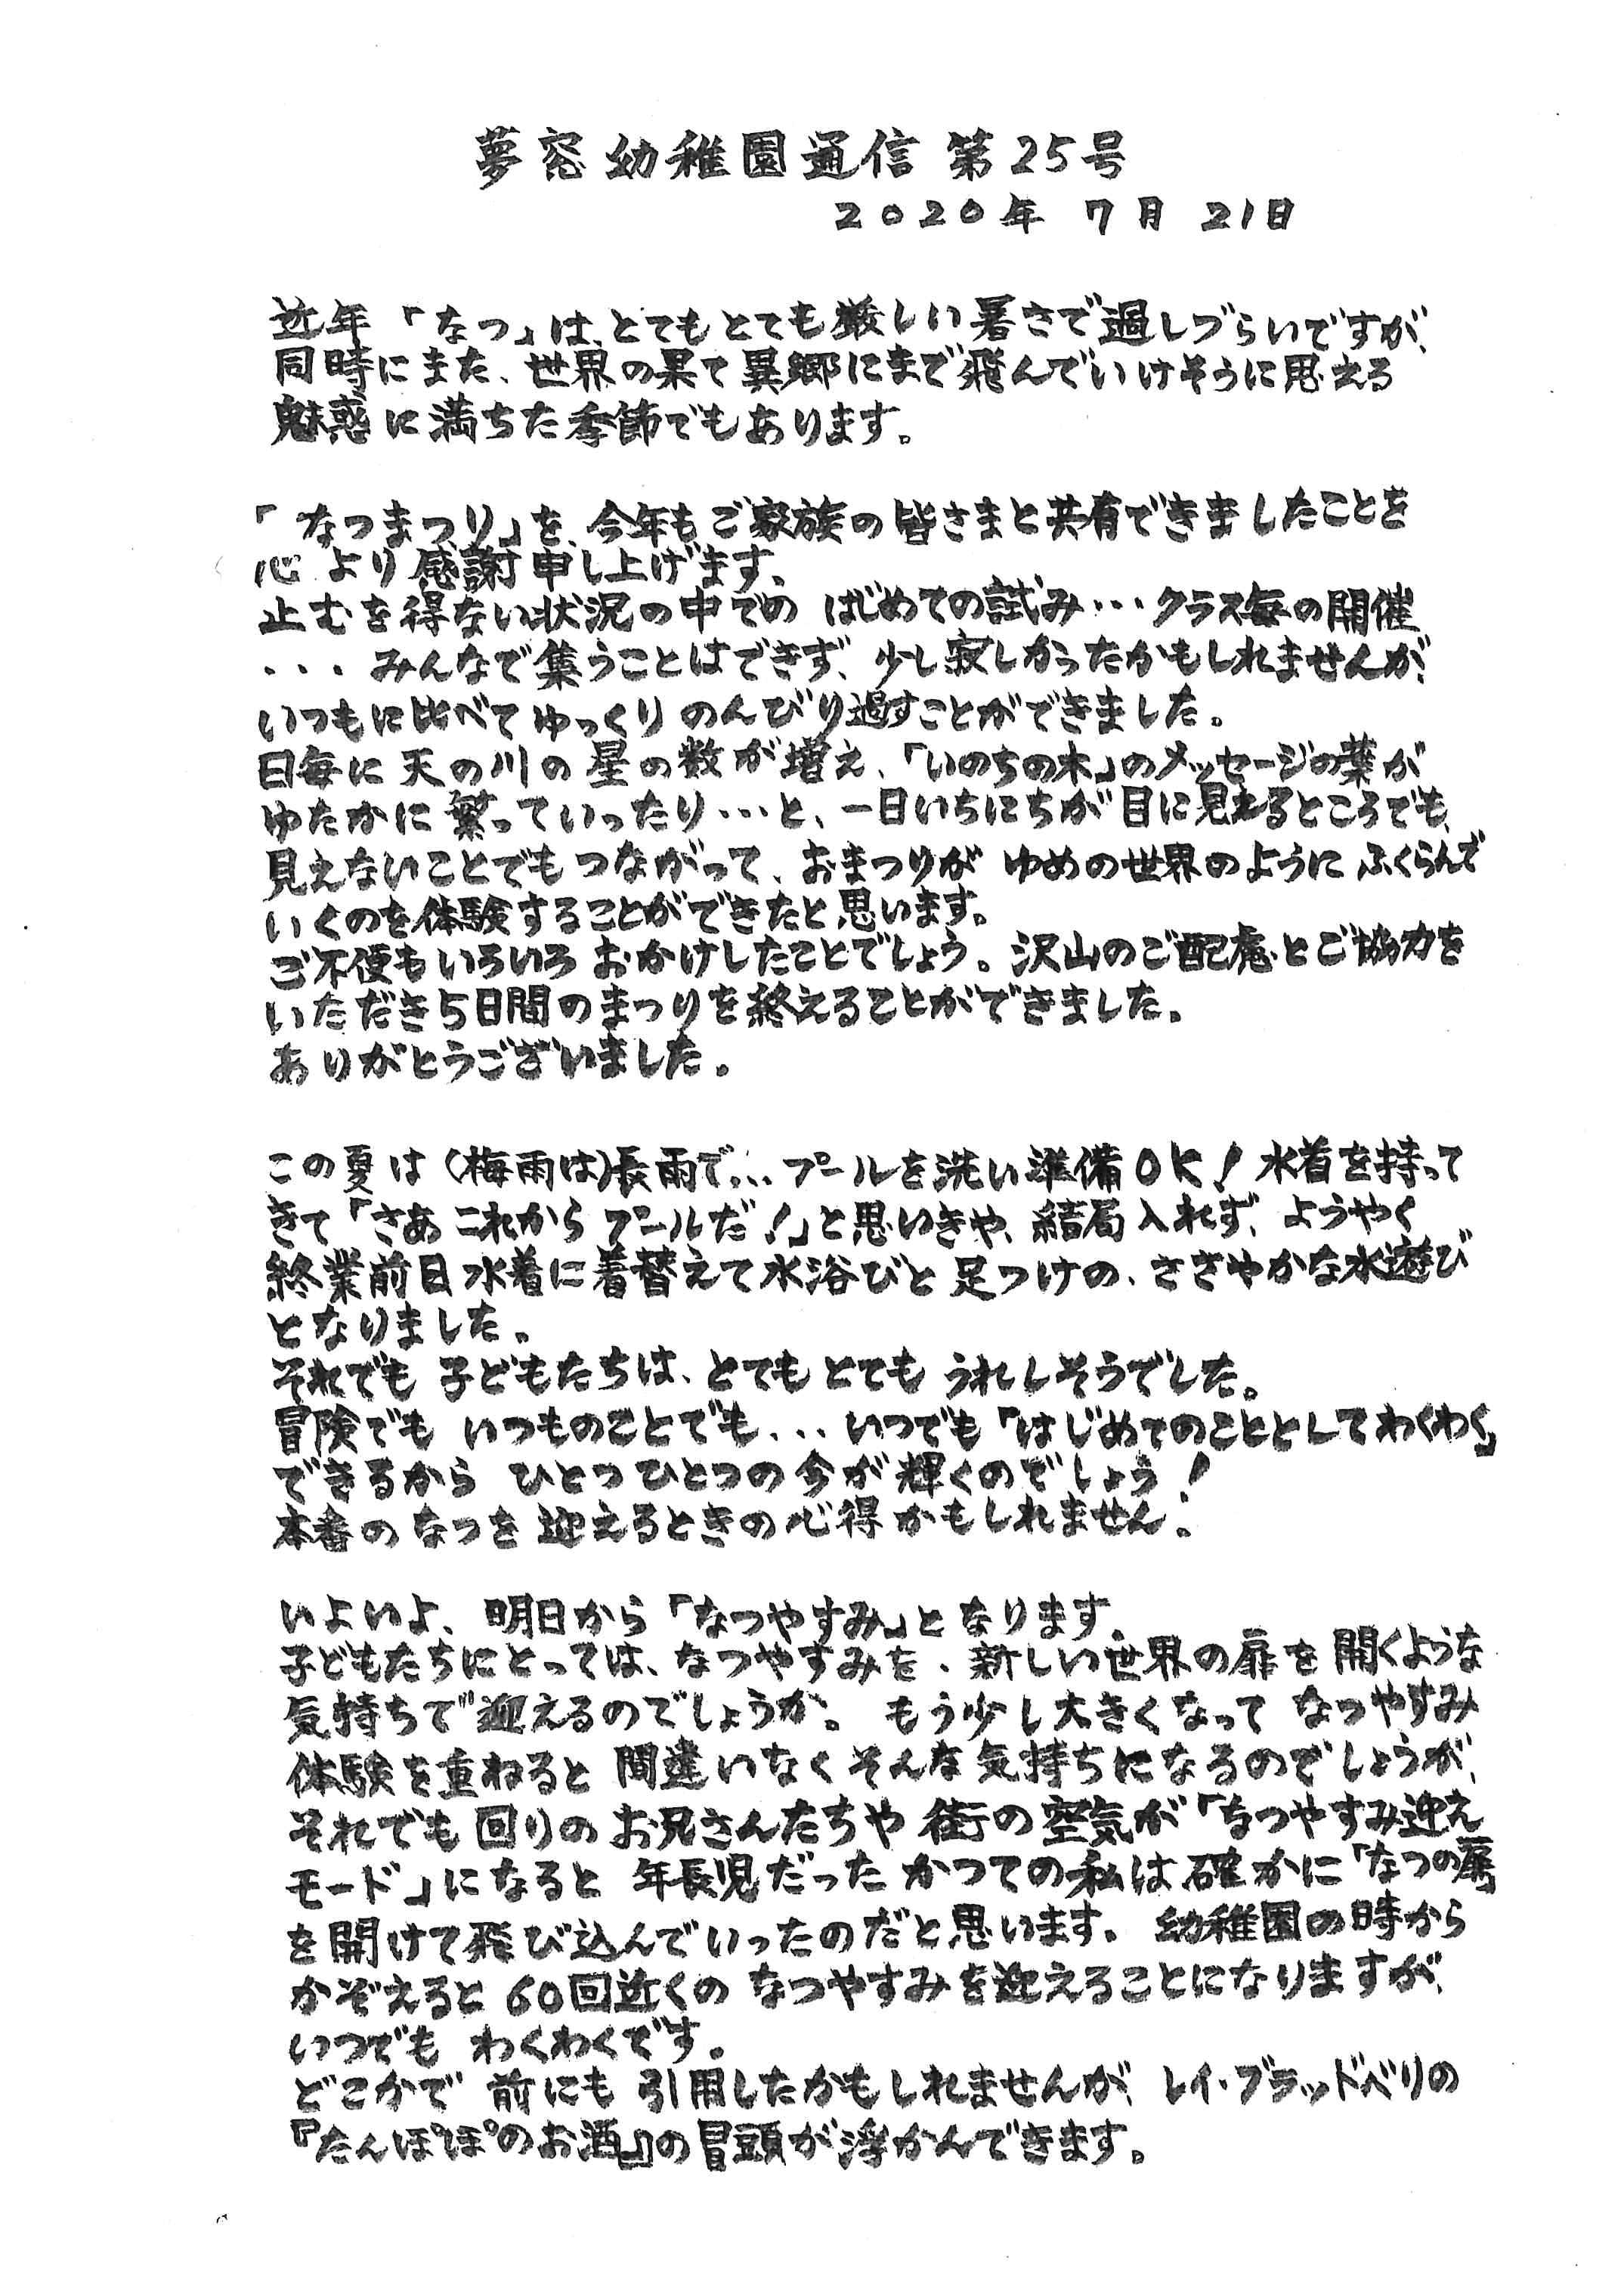 夢窓幼稚園通信 第25号
2020年 7月 21日
近年「なつ」は、とてもとても厳しい暑さで過しづらいですが、
同時にまた、世界の果て異郷にまで飛んでいけそうに思える
魅惑に満ちた季節でもあります。
「なつまつり」を、今年もご家族の皆さまと共有できましたことを
心より感謝申し上げます。
止むを得ない状況の中での はじめての試み…クラス毎の開催
...みんなで集うことはできず、少し寂しかったかもしれませんが、
いつもに比べてゆっくりのんびり過すことができました。
日毎に天の川の星の数が増え、「いのちの木」のメッセージの葉が
ゆたかに繁っていったり…と、一日いちにちが目に見えるところでも、
見えないことでもつながって、おまつりが ゆめの世界のように ふくらんで
いくのを体験することができたと思います。
ご不便もいろいろ おかけしたことでしょう。沢山のご配慮とご協力を
いただき5日間のまつりを終えることができました。
ありがとうございました。
この夏は(梅雨は)長雨で...プールを洗い準備OK!水着を持って
きて「さあこれから プールだ!」と思いきや、結局入れず、ようやく
終業前日水着に着替えて水浴びと足つけの、ささやかな水遊び
となりました。
それでも 子どもたちは、とてもとても うれしそうでした。
冒険でも いつものことでも...いつでも「はじめてのこととしてわくわく」
できるから ひとつひとつの今が輝くのでしょう!
本番のなつを迎えるときの心得かもしれません。
いよいよ、明日から「なつやすみ」となります。
子どもたちにとっては、なつやすみを、新しい世界の扉を開くような
気持ちで迎えるのでしょうか。 もう少し大きくなって なつやすみ
体験を重ねると 間違いなくそんな気持ちになるのでしょうが、
それでも回りのお兄さんたちや 街の空気が「なつやすみ迎え
モード」になると 年長児だった かつての私は 確かに「なつの扉」
を開けて飛び込んでいったのだと思います。 幼稚園の時から
かぞえると60回近くの なつやすみを迎えることになりますが、
いつでも わくわくです。
どこかで 前にも引用したかもしれませんが、レイ・ブラッドベリの
『たんぽぽのお酒』の冒頭が浮かんできます。